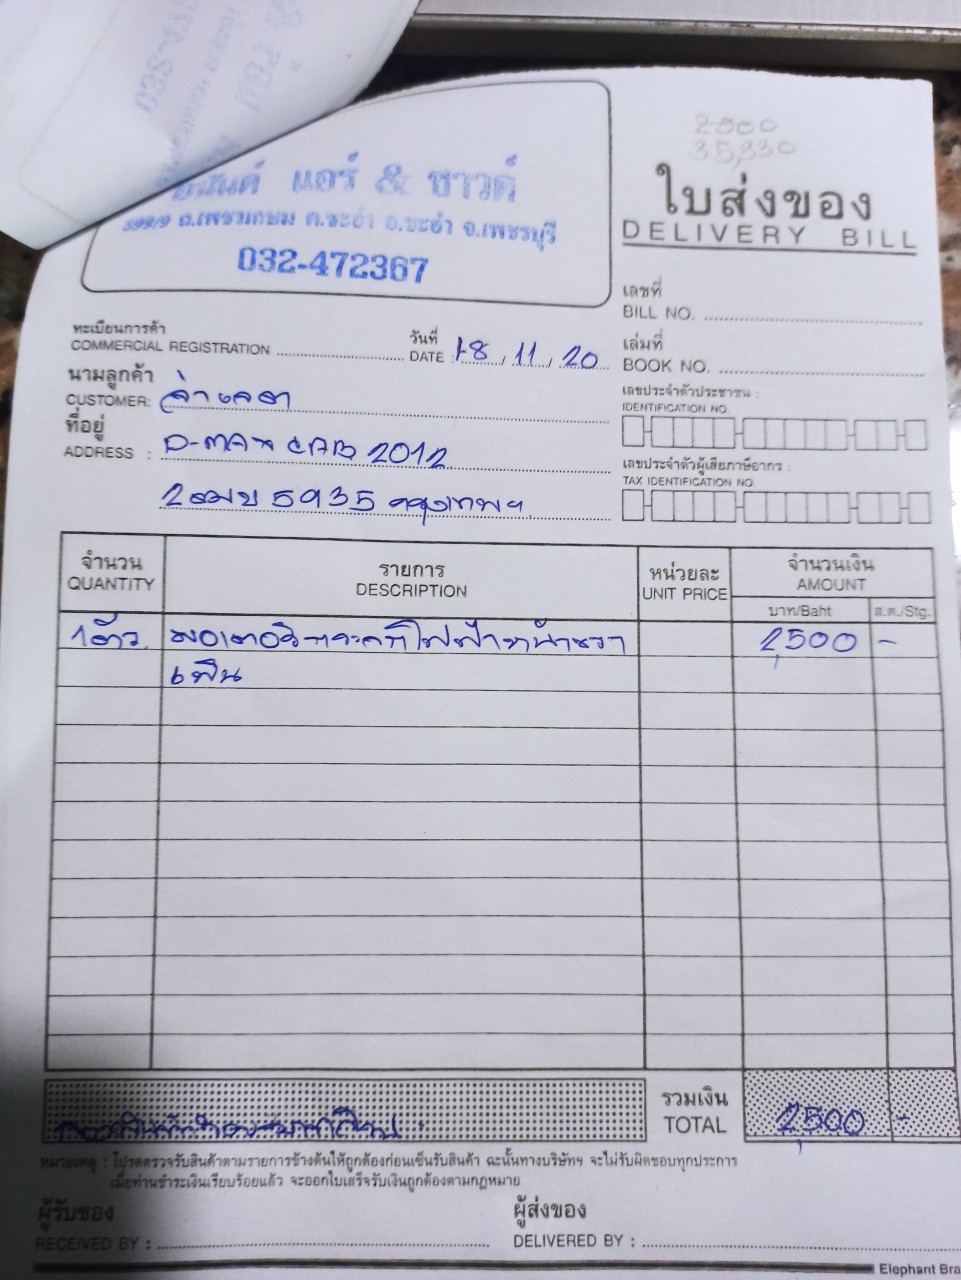 2500
35,330
แอร์ & ซาวด์
599/9 ถ.เพชรเกษม ต.ชะอำ อ.ชะอำ จ.เพชรบุรี
032-472367
ใบส่งของ
DELIVERY BILL
เลขที่
BILL NO.
ทะเบียนการค้า
COMMERCIAL REGISTRATION
วันที่
DATE 18 / 11 / 20
เล่มที่
BOOK NO.
นามลูกค้า
CUSTOMER:
เลขประจำตัวประชาชน :
IDENTIFICATION NO.
ที่อยู่
ADDRESS : D-MAX CAB 2012
เลขประจำตัวผู้เสียภาษีอากร :
TAX IDENTIFICATION NO
5935 กรุงเทพฯ
จำนวน
QUANTITY
รายการ
DESCRIPTION
หน่วยละ
UNIT PRICE
จำนวนเงิน
AMOUNT
บาท/Baht
ส.ต./Stg.
1 ตัว. ไฟฟ้าหน้า 2,500 -
6 ฟิน
รวมเงิน
TOTAL 2,500 -
หมายเหตุ : โปรดตรวจรับสินค้าตามรายการข้างต้นให้ถูกต้องก่อนเซ็นรับสินค้า ฉะนั้นทางบริษัทฯ จะไม่รับผิดชอบทุกประการ
เมื่อท่านชำระเงินเรียบร้อยแล้ว จะออกใบเสร็จรับเงินถูกต้องตามกฎหมาย
ผู้รับของ
RECEIVED BY :
ผู้ส่งของ
DELIVERED BY :
Elephant Bra